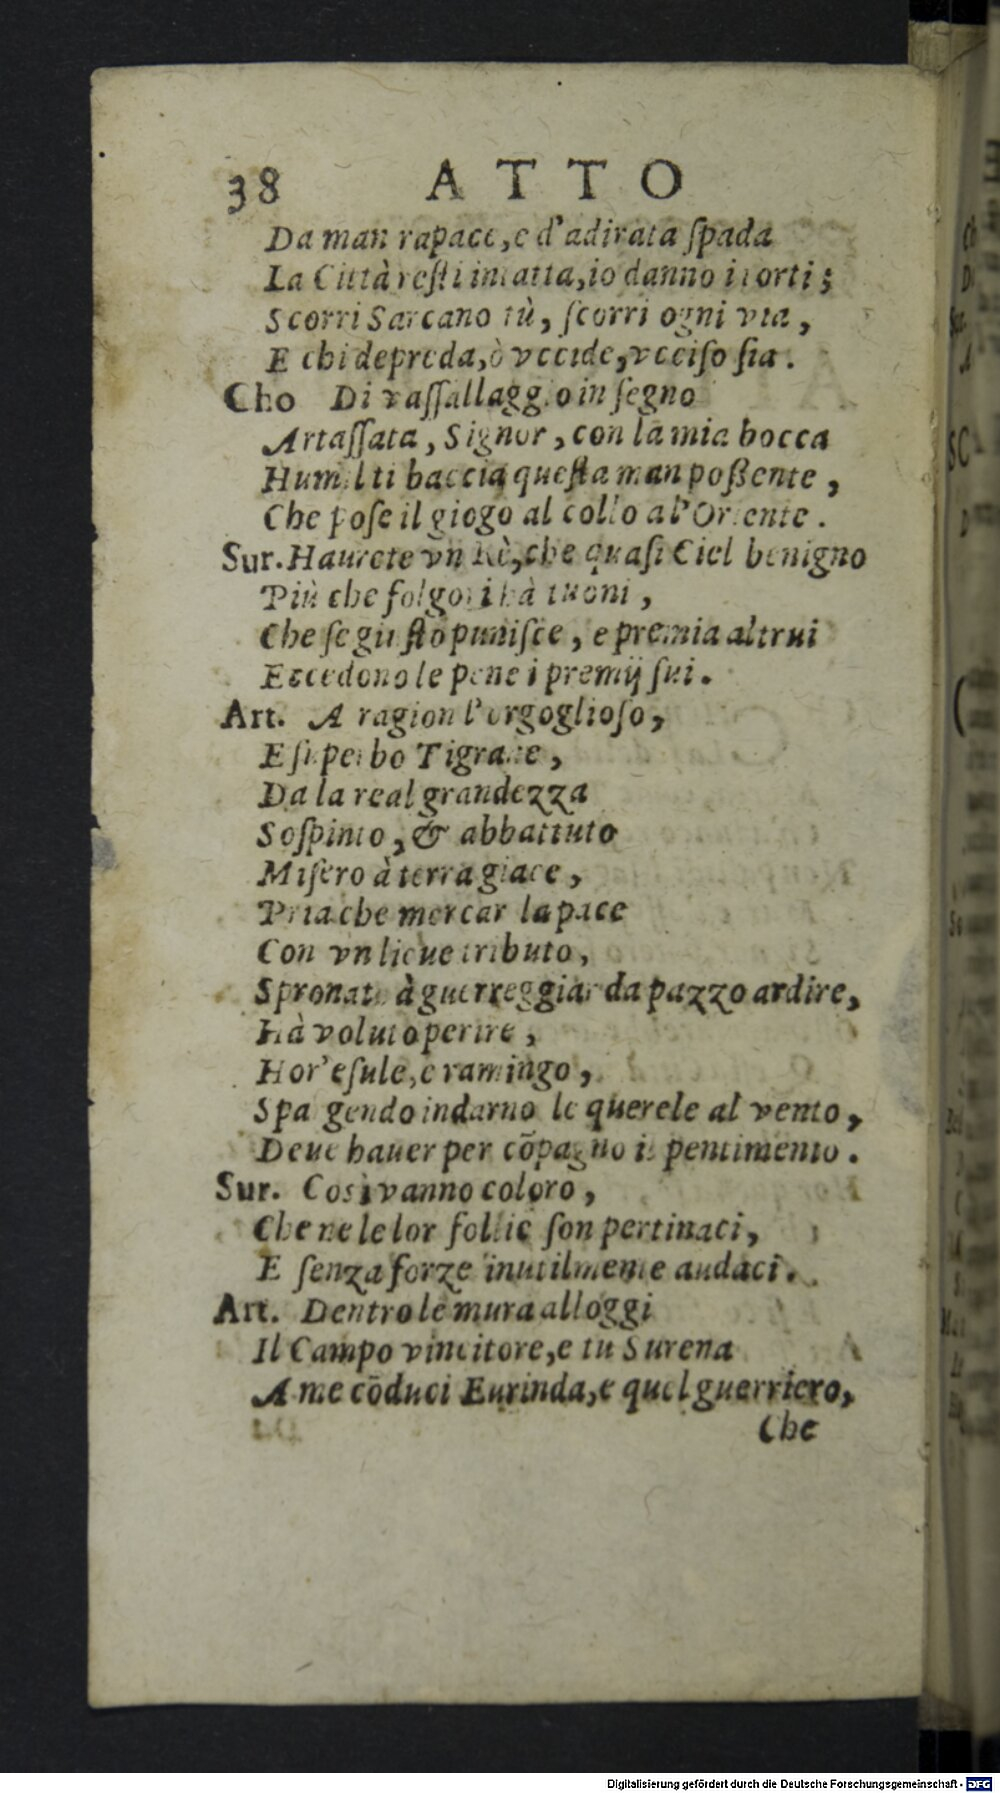 38 ATTO
Da man rapace, e d'adirata ſpada
La Città reſti intatta, io danno i torti;
Scorri Sarcano tù, ſcorri ogni via,
E chi depreda, ò vccide, vcciſo ſia.
Cho Di vaſſallaggio in ſegno
Artaſſata, Signor, con la mia bocca
Humil ti baccia queſta man poßente,
Che poſe il giogo al collo a l'Oriente.
Sur. Haurete vn Rè, che quaſi Ciel benigno
Più che folgori hà tuoni,
Che ſe giuſto puniſce, e premia altrui
Eccedono le pene i premij ſui.
Art. A ragion l'orgoglioſo,
E ſuperbo Tigrane,
Da la real grandezza
Soſpinto, & abbattuto
Miſero à terra giace,
Pria che mercar la pace
Con vn lieue tributo,
Spronato à guerreggiar da pazzo ardire,
Hà voluto perire,
Hor' eſule, e ramingo,
Spa gendo indarno le querele al vento,
Deue hauer per cõpagno il pentimento.
Sur. Così vanno coloro,
Che ne le lor follie ſon pertinaci,
E ſenza forze inutilmente audaci.
Art. Dentro le mura alloggi
Il Campo vincitore, e tu Surena
A me cõduci Eurinda, e quel guerriero,
Che
Digitalisierung gefördert durch die Deutsche Forschungsgemeinschaft - DFG